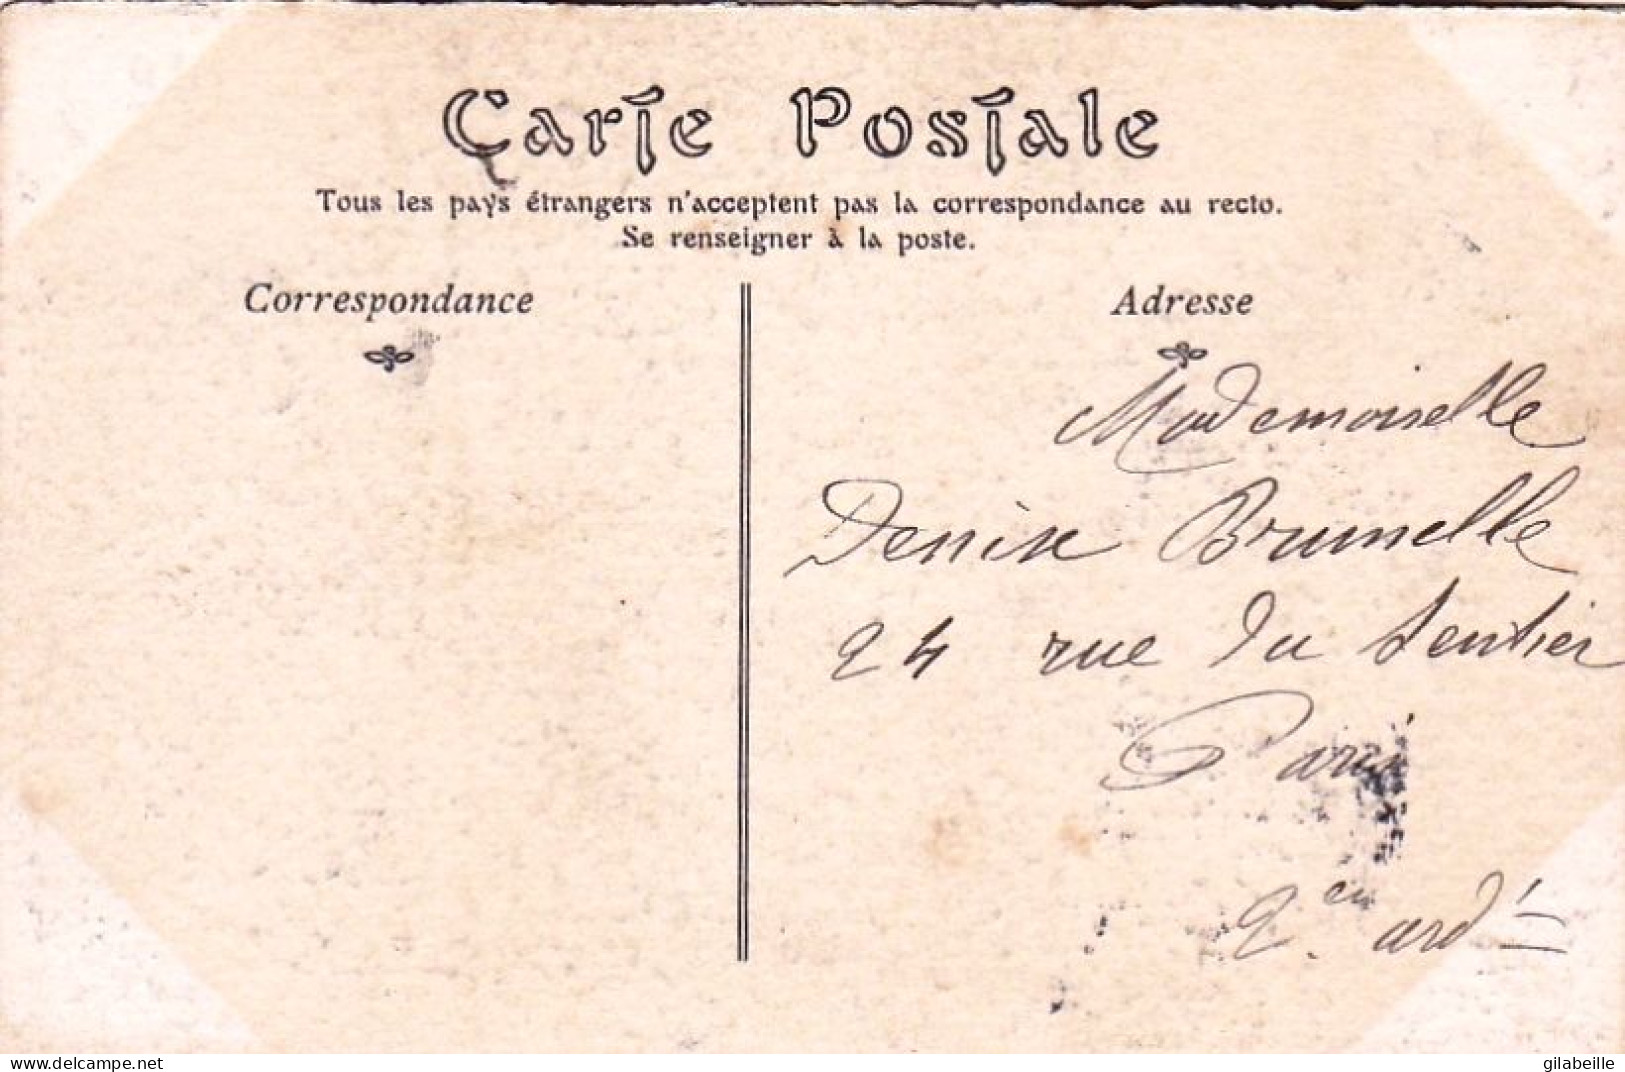 Carte Postale
Tous les pays étrangers n'acceptent pas la correspondance au recto.
Se renseigner à la poste.
Correspondance
Adresse
Mademoiselle
Denise Brunelle
24 rue du Sentier
Paris
2.em ardt
www.delcampe.net
gilabeille